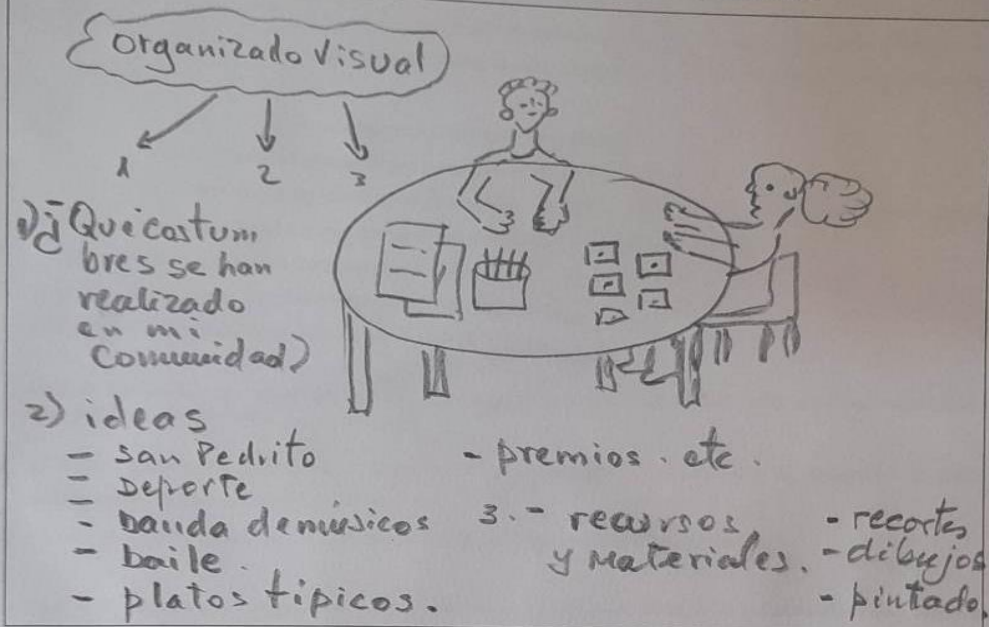 Organizado Visual
1 2 3
1) ¿Qué costum
bres se han
realizado
en mi
Comunidad?
2) ideas
- San Pedrito
- Deporte
- banda de músicos
- baile.
- platos típicos.
- premios. etc.
3.- recursos
y Materiales.
- recortes
- dibujos
- pintado